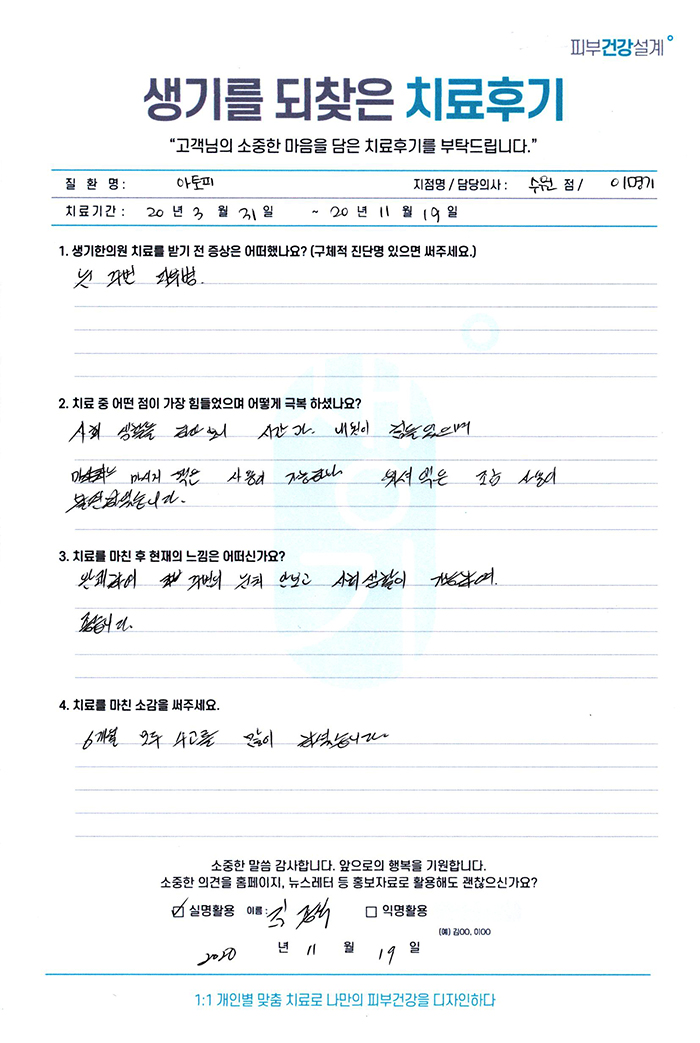 피부건강설계
생기를 되찾은 치료후기
“고객님의 소중한 마음을 담은 치료후기를 부탁드립니다.”
질 환 명 : 아토피 지점명 / 담당의사 : 수원 점 / 이명기
치료기간 : 20 년 3 월 31 일 ~ 20 년 11 월 19 일
1. 생기한의원 치료를 받기 전 증상은 어떠했나요? (구체적 진단명 있으면 써주세요.)
피부병.
2. 치료 중 어떤 점이 가장 힘들었으며 어떻게 극복 하셨나요?
사회 생활을 시간
3. 치료를 마친 후 현재의 느낌은 어떠신가요?
주변의 눈치 안보고 사회생활이 가능하여.
좋습니다.
4. 치료를 마친 소감을 써주세요.
6개월 모두 수고를 많이 하셨습니다.
소중한 말씀 감사합니다. 앞으로의 행복을 기원합니다.
소중한 의견을 홈페이지, 뉴스레터 등 홍보자료로 활용해도 괜찮으신가요?
실명활용 이름 : 익명활용
(예) 김OO, 이OO
2020 년 11 월 19 일
1:1 개인별 맞춤 치료로 나만의 피부건강을 디자인하다
생기